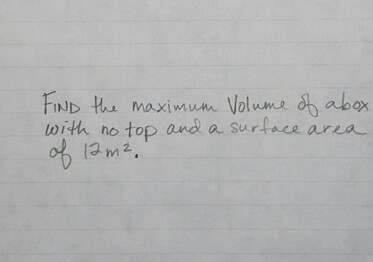 FIND the maximum Volume of a box
with no top and a surface area
of 12m².